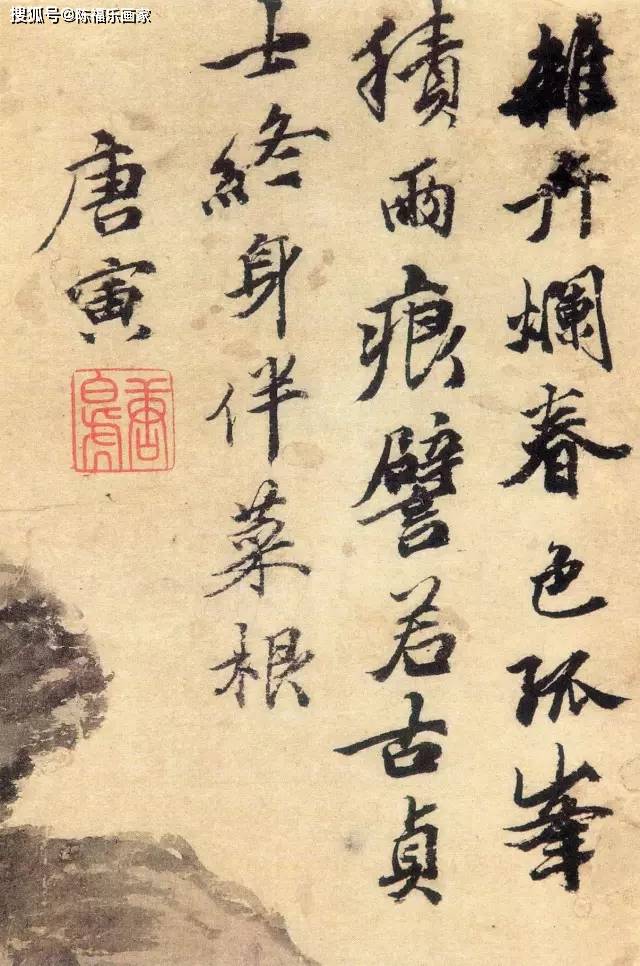 搜狐号@陈福乐画家
雜卉爛春色孤峯
積雨痕譬若古貞
士終身伴菜根
唐寅
唐寅